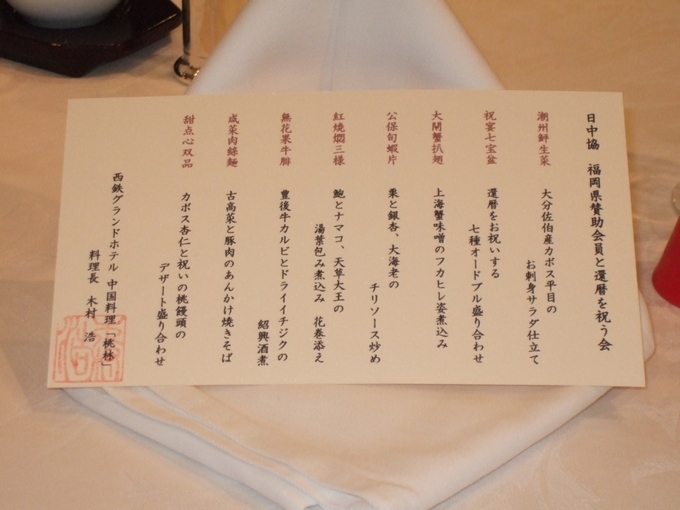 日中協 福岡県賛助会員と還暦を祝う会
潮州鮮生菜
大分佐伯産カボス平目の
お刺身サラダ仕立て
祝宴七宝盆
還暦をお祝いする
七種オードブル盛り合わせ
大閘蟹扒翅
上海蟹味噌のフカヒレ姿煮込み
公保旬蝦片
栗と銀杏、大海老の
チリソース炒め
紅焼燜三様
鮑とナマコ、天草大王の
湯葉包み煮込み 花巻添え
無花果牛腩
豊後牛カルビとドライイチジクの
紹興酒煮
咸菜肉絲麺
古高菜と豚肉のあんかけ焼きそば
甜点心双品
カボス杏仁と祝いの桃饅頭の
デザート盛り合わせ
西鉄グランドホテル 中国料理「桃林」
料理長 木村 浩